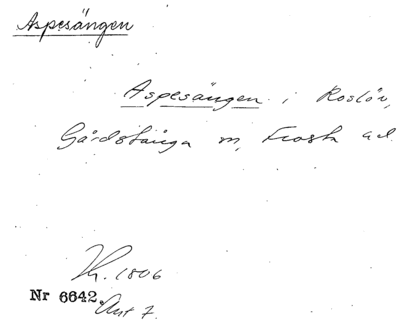 Aspesängen
Aspesängen i Roslöv,
Gårdstånga m, Frosta ad.
Nr 6642.